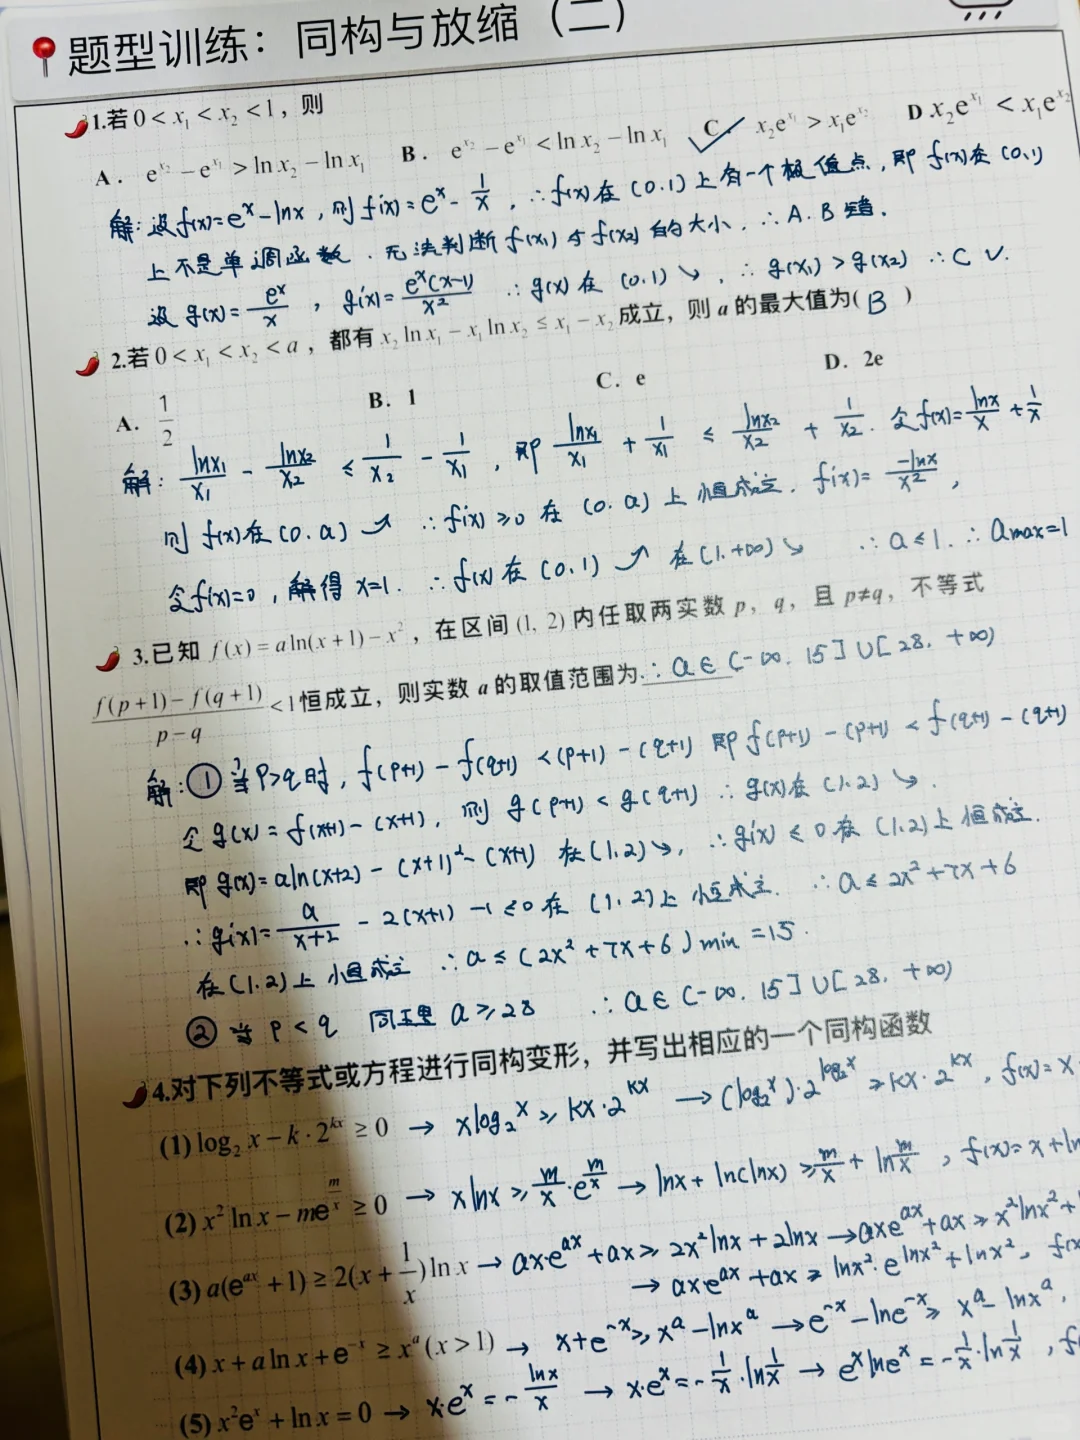 题型训练：同构与放缩（二）
1.若 0 < x₁ < x₂ < 1，则
A． e^{x₂} − e^{x₁} > ln x₂ − ln x₁ B． e^{x₂} − e^{x₁} < ln x₂ − ln x₁ C ✓ x₂e^{x₁} > x₁e^{x₂} D x₂e^{x₁} < x₁e^{x₂}
解：设f(x)=e^x−lnx，则f'(x)=e^x−1/x，∴f(x)在(0.1)上有一个极值点，即f(x)在(0,1)
上不是单调函数．无法判断f(x₁)与f(x₂)的大小．∴A.B错．
设g(x)=e^x/x，g'(x)=e^x(x−1)/x² ∴g(x)在(0.1)↘，∴g(x₁)>g(x₂) ∴C√.
2.若 0 < x₁ < x₂ < a，都有 x₂ ln x₁ − x₁ ln x₂ ≤ x₁ − x₂ 成立，则 a 的最大值为( B )
A． 1/2 B．1 C．e D．2e
解：lnx₁/x₁ − lnx₂/x₂ ≤ 1/x₂ − 1/x₁，即 lnx₁/x₁ + 1/x₁ ≤ lnx₂/x₂ + 1/x₂．令f(x)=lnx/x+1/x
则f(x)在(0.a)↗ ∴f'(x)≥0在(0.a)上恒成立．f'(x)=−lnx/x²，
令f'(x)=0，解得x=1．∴f(x)在(0.1)↗在(1.+∞)↘ ∴a≤1．∴amax=1
3.已知 f(x) = a ln(x+1) − x²，在区间 (1, 2) 内任取两实数 p，q，且 p≠q，不等式
f(p+1)−f(q+1)/p−q <1恒成立，则实数 a 的取值范围为.∴a∈(−∞.15]∪[28.+∞)
解：①当p>q时，f(p+1)−f(q+1)<(p+1)−(q+1) 即f(p+1)−(p+1)<f(q+1)−(q+1)
令g(x)=f(x+1)−(x+1)，则g(p+1)<g(q+1) ∴g(x)在(1.2)↘．
即g(x)=aln(x+2)−(x+1)²−(x+1)在(1.2)↘，∴g'(x)≤0在(1.2)上恒成立．
∴g'(x)=a/x+2−2(x+1)−1≤0在(1.2)上恒成立．∴a≤2x²+7x+6
在(1.2)上恒成立 ∴a≤(2x²+7x+6)min=15．
②当p<q 同理a≥28 ∴a∈(−∞.15]∪[28.+∞)
4.对下列不等式或方程进行同构变形，并写出相应的一个同构函数
(1) log₂ x − k · 2^{kx} ≥ 0 → xlog₂^x ≥ kx·2^{kx} → (log₂^x)·2^{log₂^x} ≥ kx·2^{kx}，f(x)=x
(2) x² ln x − me^{m/x} ≥ 0 → xlnx ≥ m/x·e^{m/x} → lnx+ln(lnx) ≥ m/x+ln m/x，f(x)=x+ln
(3) a(e^{ax} + 1) ≥ 2(x + 1/x) ln x → ax·e^{ax}+ax ≥ 2x²lnx+2lnx → axe^{ax}+ax ≥ x²lnx²+
→ ax·e^{ax}+ax ≥ lnx²·e^{lnx²}+lnx²，f(x
(4) x + a ln x + e^{−x} ≥ x^a (x > 1) → x+e^{−x} ≥ x^a−lnx^a → e^{−x}−lne^{−x} ≥ x^a−lnx^a，
(5) x²e^x + ln x = 0 → x·e^x = −lnx/x → x·e^x = −1/x·ln1/x → e^x lne^x = −1/x·ln1/x，f(